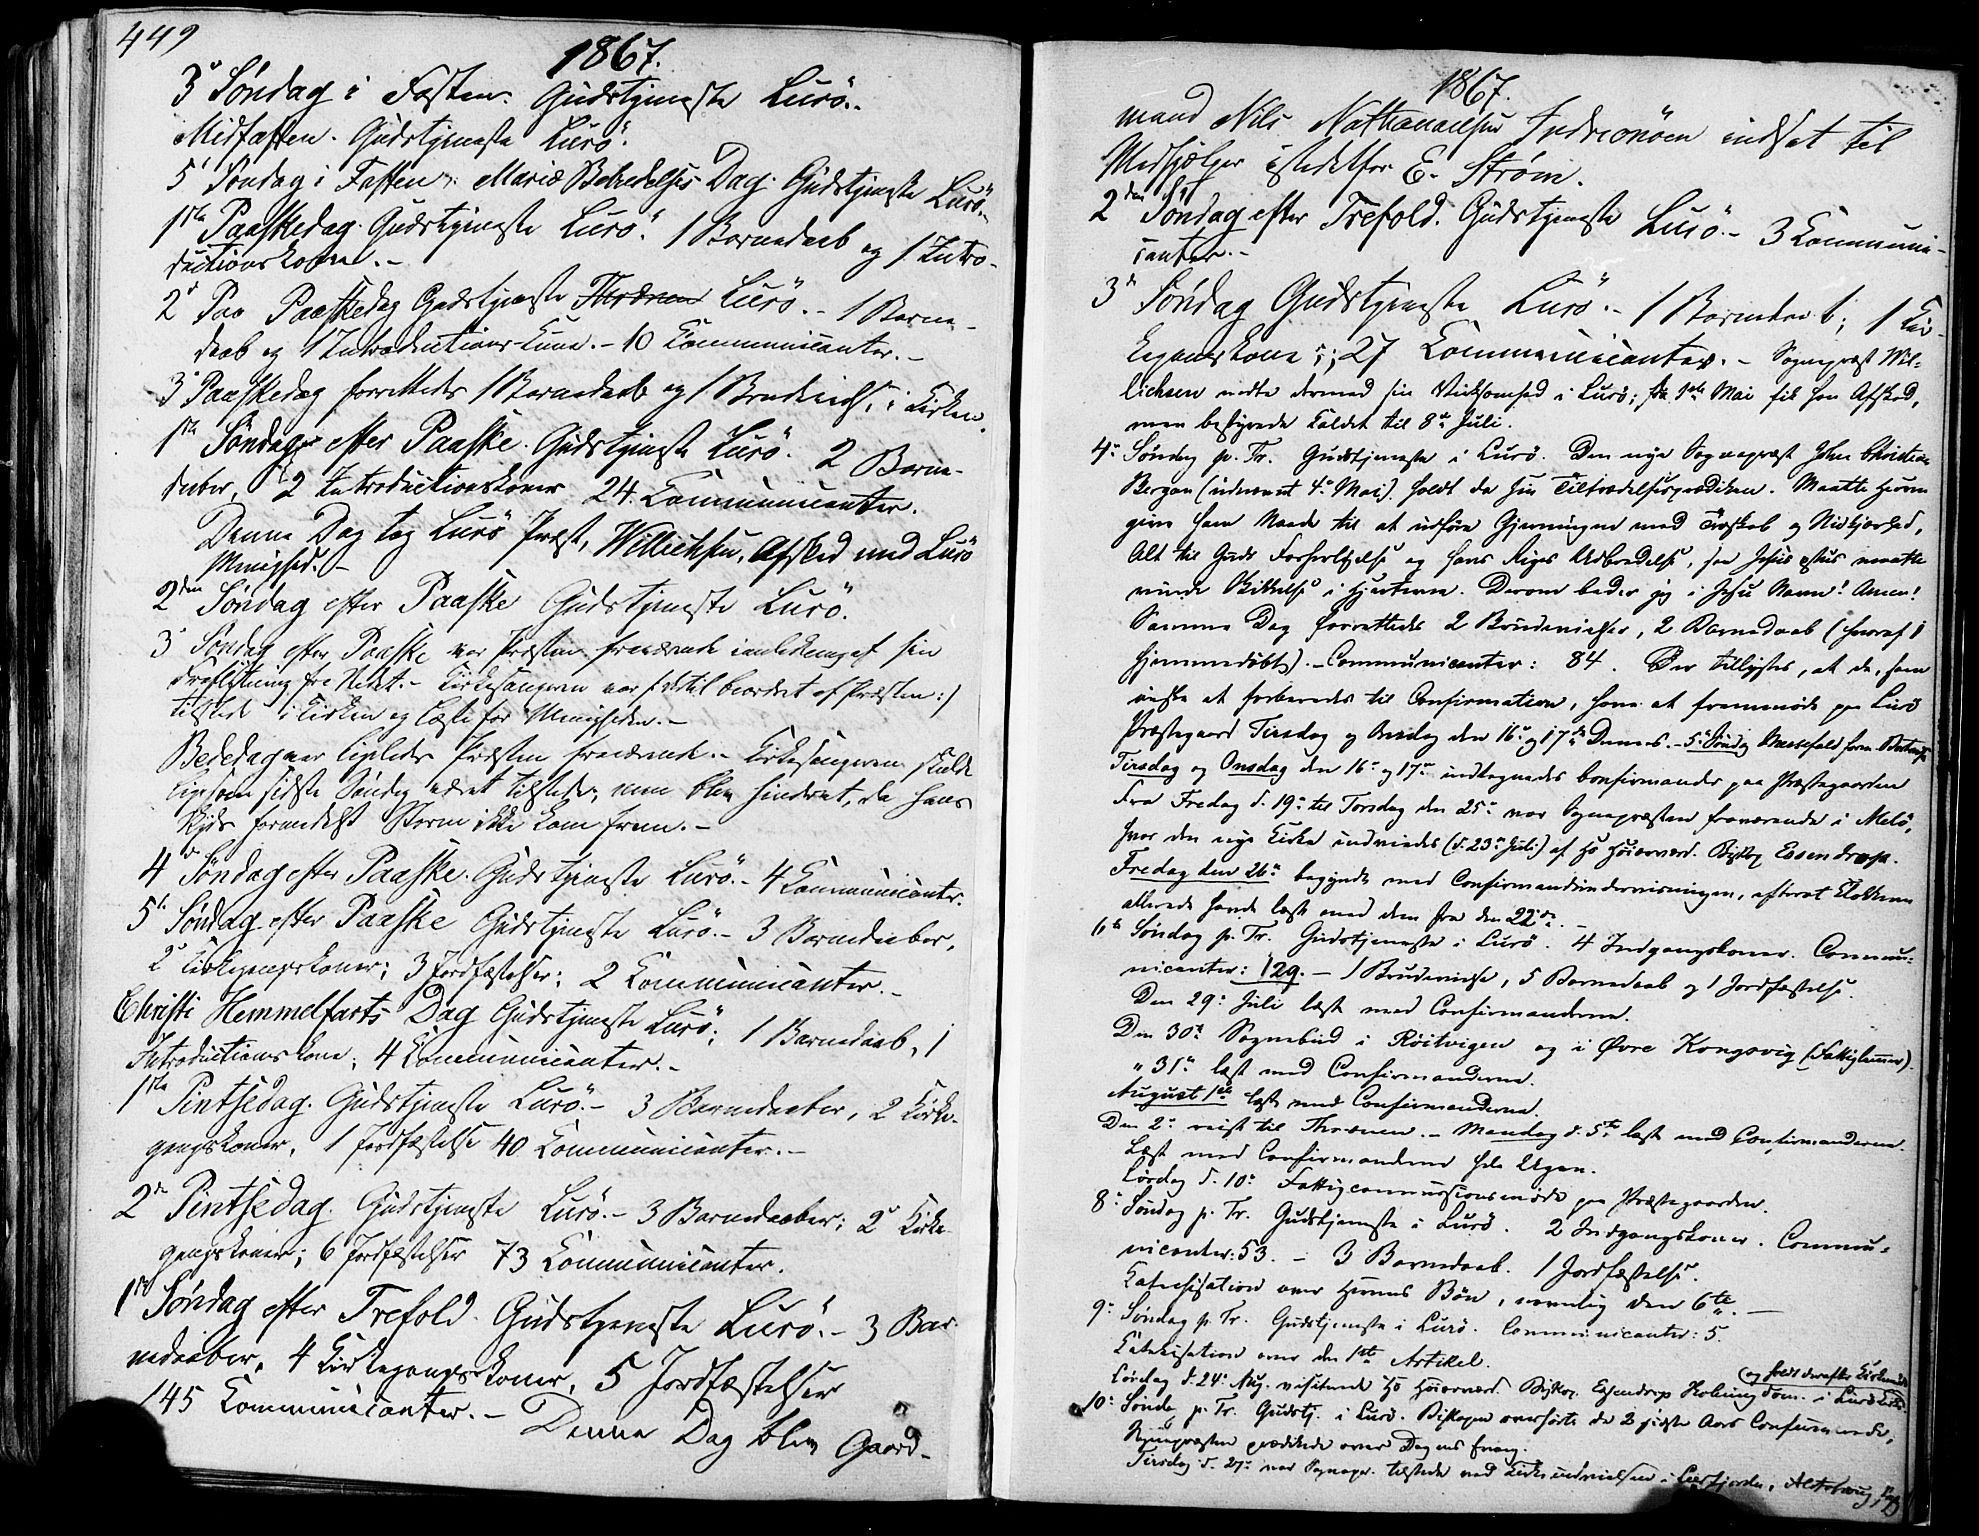 449
1867.
3die Søndag i Fasten. Gudstjeneste Lurö.
Midfasten. Gudstjeneste Lurö.
5 Søndag i Fasten, Mariæ Bebudelses Dag. Gudstjeneste Lurö.
1ste Paaskedag. Gudstjeneste Lurö. 1 Barnedaab og 1 Intro-
ductionskone.-
2d Paaskedag Gudstjeneste Lurö.- 1 Barne-
daab og 1 Introductionskone.- 10 Communicanter.-
3 Paaskedag forrettedes 1 Barnedaab og 1 Brudevielse i Kirken.
1ste Søndag efter Paaske. Gudstjeneste Lurö. 2 Barne-
daaber, 2 Introductionskoner 24 Communicanter.
Denne Dag tog Lurö Præst, Willichsen, Afsked med Lurö
Menighed.-
2den Søndag efter Paaske Gudstjeneste Lurö.
3 Søndag efter Paaske var Præsten fraværende i anledning af sin
Fraflytning fra Stedet.- Kirkesangeren var /: dertil beordret af Præsten :/
tilstede i Kirken og læste for Menigheden.-
Bededag var ligeledes Præsten fraværende.- Kirkesangeren skulde
ligesom sidste Søndag været tilstede, men blev hindret, da hans
Skyds formedelst Storm ikke kom frem.-
4de Søndag efter Paaske. Gudstjeneste Lurö.- 4 Communicanter.
5te Søndag efter Paaske Gudstjeneste Lurö.- 3 Barnedaaber,
2 Kirkegangskoner; 3 Jordfæstelser; 2 Communicanter.-
Christi Hemmelfarts Dag Gudstjeneste Lurö; 1 Barnedaab, 1
Introductionskone; 4 Communicanter.-
1ste Pintsedag. Gudstjeneste Lurö.- 3 Barnedaaber, 2 Kirke-
gangskoner, 1 Jordfæstelse 40 Communicanter.-
2den Pintsedag. Gudstjeneste Lurö.- 3 Barnedaaber; 2 Kirke-
gangskoner; 6 Jordfæstelser 73 Communicanter.
1ste Søndag efter Trefold. Gudstjeneste Lurö.- 3 Bar-
nedaaber, 4 Kirkegangskoner, 5 Jordfæstelser
145 Communicanter.- Denne Dag blev Gaard-
1867.
mand Nils Nathanaelsen Indreonöen indsat til
Medhjælper istedetfor E. Strøm.
2den Søndag efter Trefold. Gudstjeneste Lurö.- 3 Communi-
canter.-
3die Søndag Gudstjeneste Lurö.- 1 Barnedaab; 1 Kir-
kegangskone; 27 Communicanter.- Sognepræst Wil-
lichsen endte dermed sin Virksomhed i Lurö; 1ste Mai fik han Afsked,
men bestyrede Kaldet til 8de Juli.
4de Søndag p. Tr. Gudstjeneste i Lurö. Den nye Sognepræst John Christian
Bergan (udnævnt 4de Mai) holdt da sin Tiltrædelsesprædiken. Maatte Herren
give ham Naade til at udføre Gjerningen med Troskab og Nidkjærhed,
Alt til Guds Forherligelse og hans Riges Udbredelse, saa Jesus Xstus maatte
vinde Skikkelse i Hjerterne. Derom beder jeg i Jesu Navn! Amen!
Samme Dag forrettedes 2 Brudevielser, 2 Barnedaab (hvoraf 1
hjemmedøbt).- Communicanter: 84. Der tillystes, at de, som
ønske at forberedes til Confirmation, have at fremmøde paa Lurö
Præstegaard Tirsdag og Onsdag den 16de og 17de Dennes.- 5te Søndag Messefald
Tirsdag og Onsdag den 16de og 17de indtegnedes Confirmander paa Præstegaarden
Fra Fredag d. 19de til Torsdag den 25de var Sognepræsten fraværende i Melö,
hvor den nye Kirke indviedes (d. 23de Juli) af Hs Høiærværd. Biskop Essendrop.
Fredag den 26de begyndt med Confirmandundervisningen, efterat Klokkeren
allerede havde læst med dem fra den 22de.
6te Søndag p. Tr. Gudstjeneste i Lurö. 4 Indgangskoner. Commu-
nicanter: 129.- 1 Brudevielse, 5 Barnedaab og 1 Jordfæstelse.
Den 29de Juli læst med Confirmanderne.
Den 30te Sognebud i Röitvigen og i Øvre Kongsvig (Fattiglemmer).
" 31te læst med Confirmanderne.
August 1ste læst med Confirmanderne.
Den 2den reist til Thrænen.- Mandag d. 5te læst med Confirmanderne.
Læst med Confirmanderne hele Ugen.
Lördag d. 10de Fattigcommissionsmöde paa Præstegaarden.
8de Søndag p. Tr. Gudstjeneste i Lurö. 2 Indgangskoner. Commu-
nicanter: 53.- 3 Barnedaab. 1 Jordfæstelse.
Katechisation over Herrens Bön, nemlig den 6te.-
9de Søndag p. Tr. Gudstjeneste i Lurö. Communicanter: 5.
Katekisation over den 1ste Artikel.
Lördag d. 24de Aug. visiterede Hs Høiærværd. Biskop Essendrop i Lurö Kirke.
10de Sönd. p. Tr. Gudstj. i Lurö. Biskopen overhörte de 2 sidste Aars Confirmerede,
Sognepræsten prædikede over Dagens Evang.
Tirsdag d. 27de var Sognepr. tilstede ved Kirkeindvielsen i Leerfjorden, Alstahoug